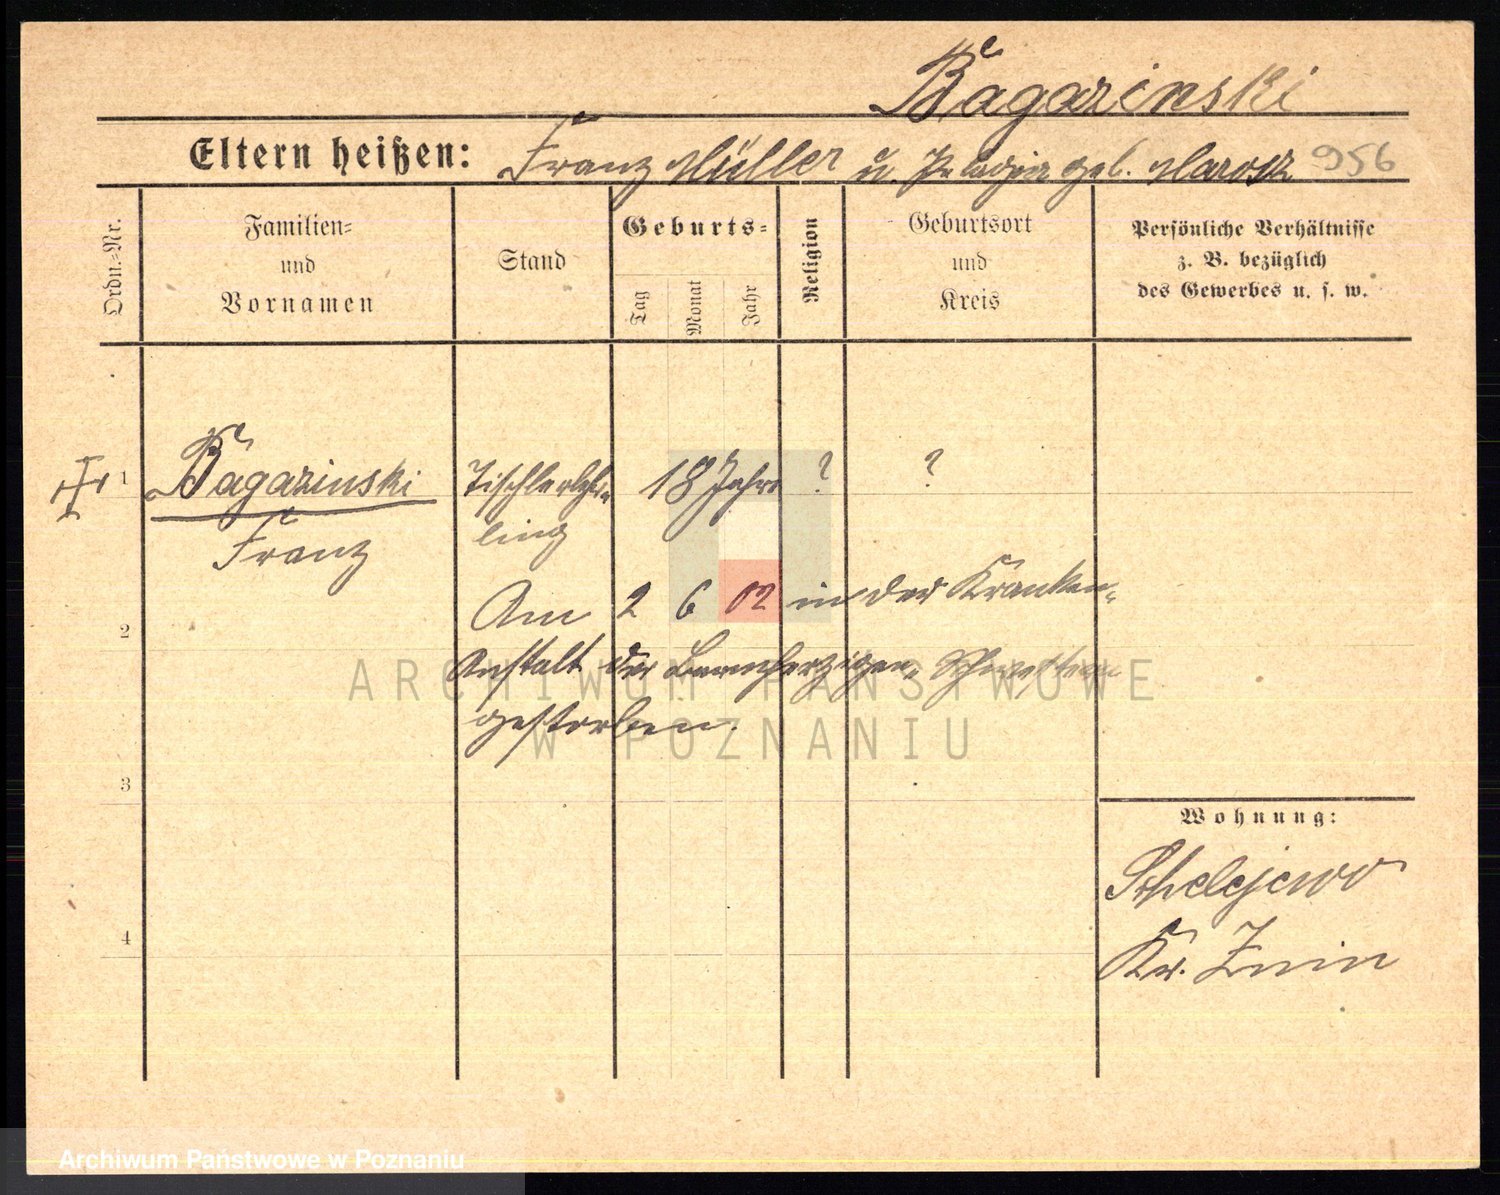 Bagazinski
Eltern heißen: Franz Müller u. Pelagia geb. Marosz 956
Ordn.-Nr.
Familien-
und
Vornamen
Stand
Geburts-
Tag
Monat
Jahr
Religion
Geburtsort
und
Kreis
Persönliche Verhältnisse
z. B. bezüglich
des Gewerbes u. s. w.
1 Bagazinski Tischlerlehr- 18 Jahre ? ?
Franz ling
Am 2 6 02 in der Kranken-
2
Anstalt der Barmherzigen Schwestern
gestorben.
3
4
Wohnung:
Kr. Znin
ARCHIWUM PAŃSTWOWE
W POZNANIU
Archiwum Państwowe w Poznaniu